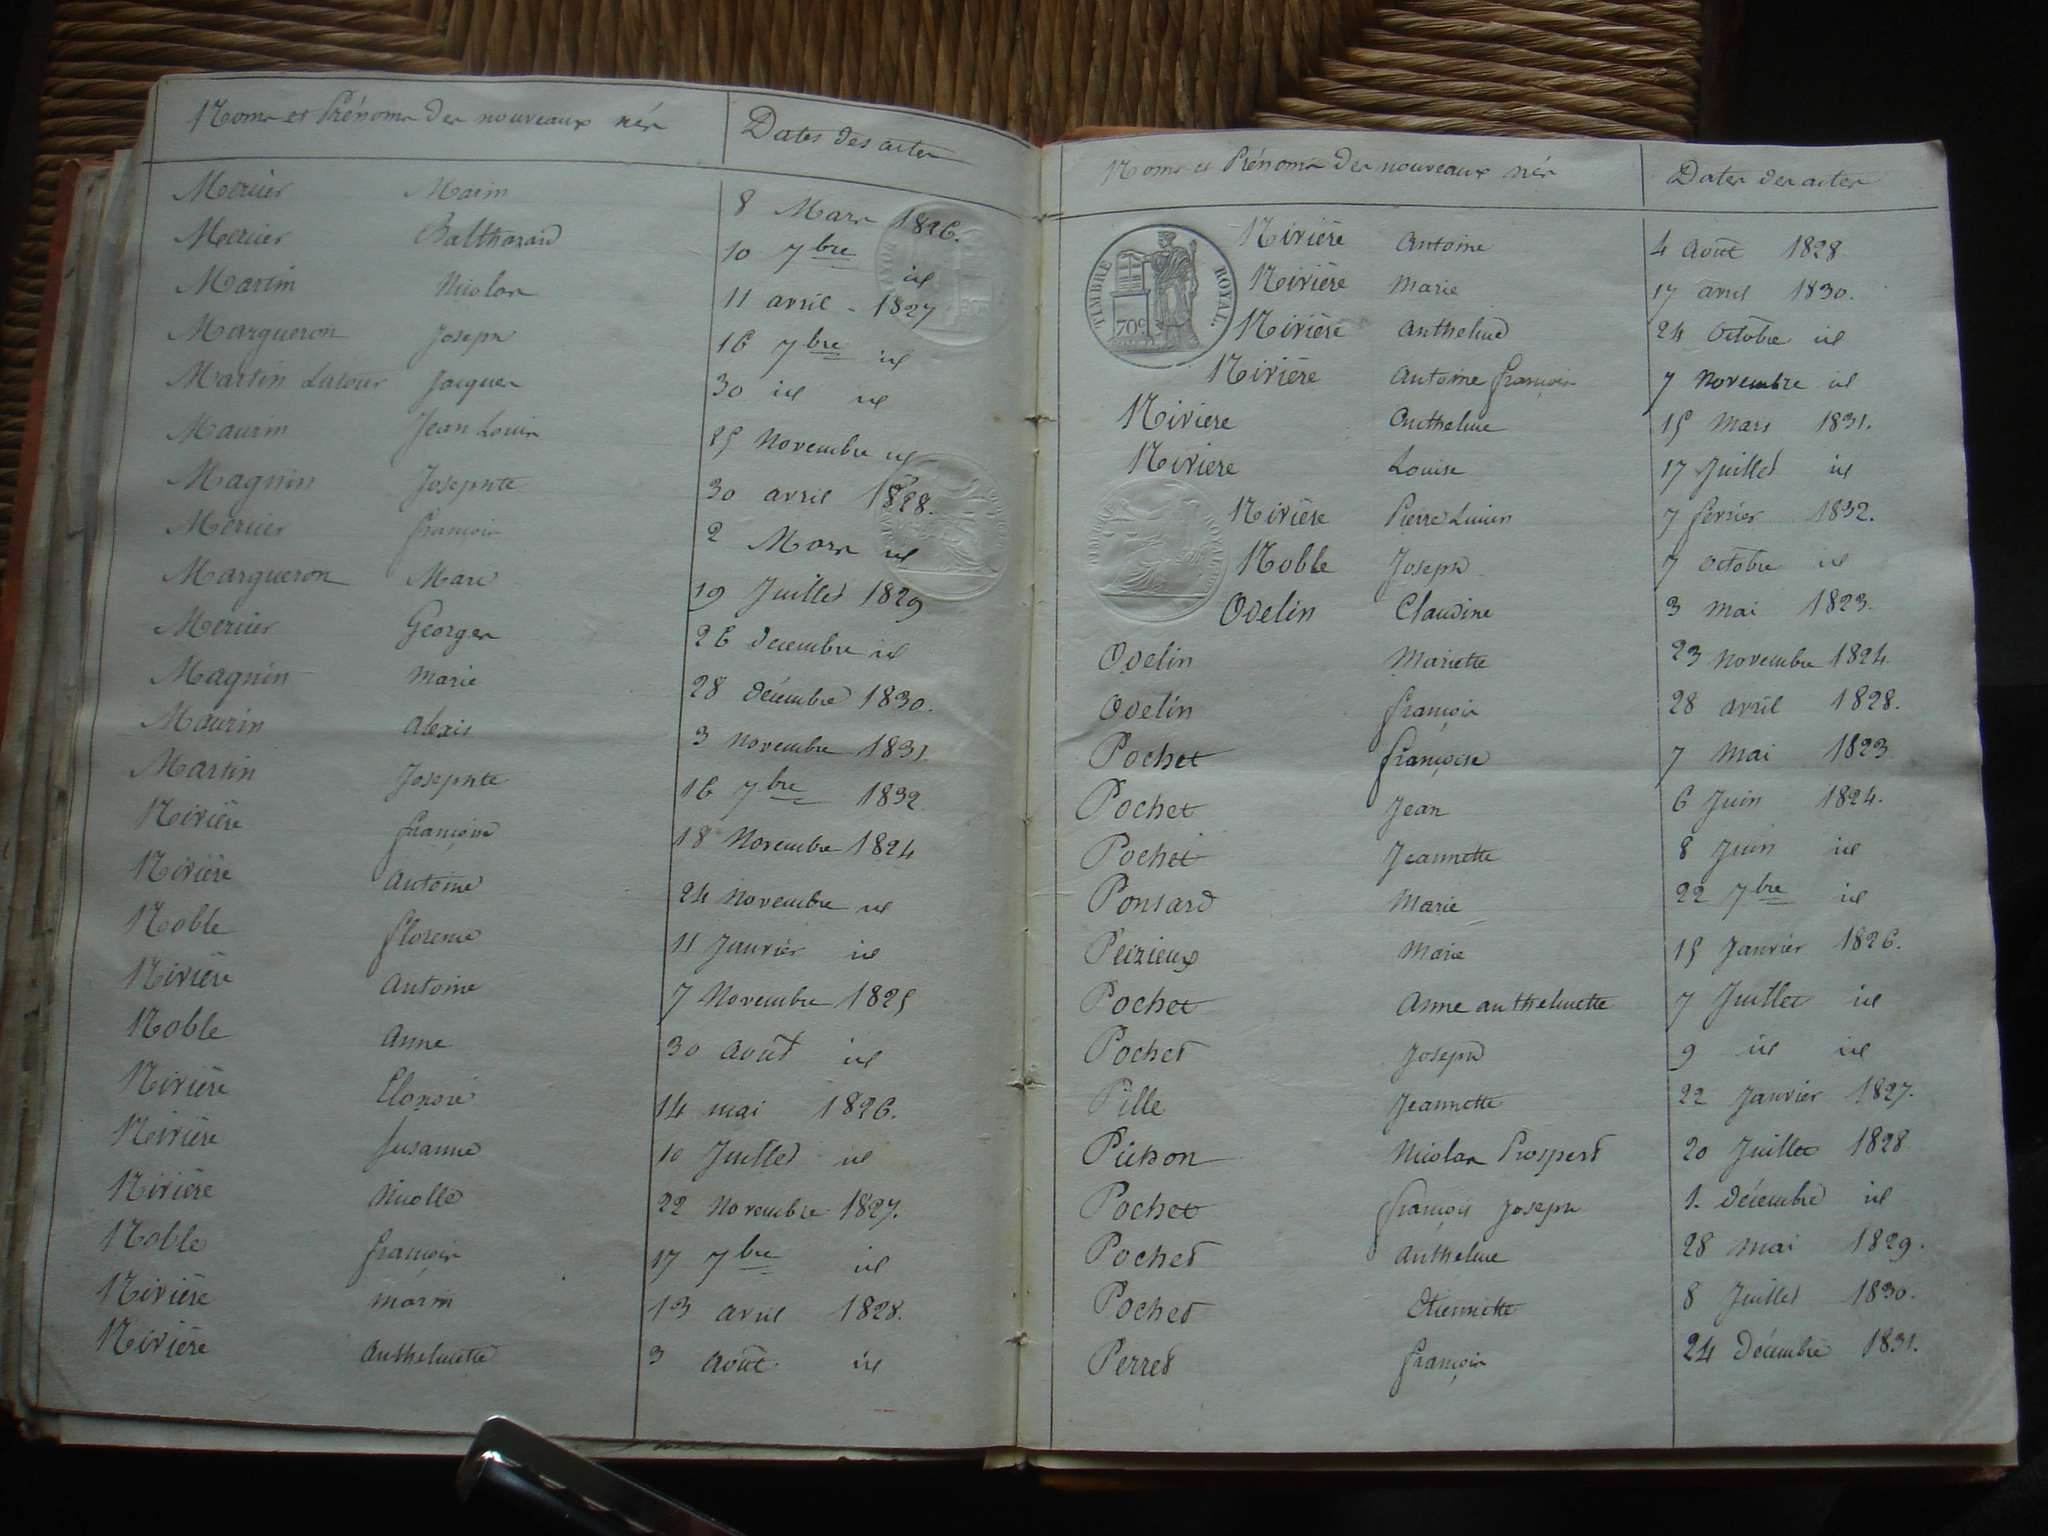 Noms et Prénoms des nouveaux nés Dates des actes
Mercier Marin 8 Mars 1826.
Mercier Balthazard 10 7bre id
Martin Nicolas 11 avril - 1827
Margueron Joseph 16 7bre id
Martin Latour Jacques 30 id id
Maurin Jean Louis 25 Novembre id
Magnin Josephte 30 avril 1828.
Mercier françois 2 Mars id
Margueron Marie 19 Juillet 1829
Mercier Georges 26 decembre id
Magnin Marie 28 décembre 1830.
Maurin alexis 3 novembre 1831.
Martin Josephte 16 7bre 1832
Nivière françoise 18 Novembre 1824
Nivière antoine 24 Novembre id
Noble florence 11 Janvier id
Nivière antoine 7 Novembre 1825
Noble anne 30 août id
Nivière Elonore 14 mai 1826.
Nivière Susanne 10 Juillet id
Nivière Nicolle 22 Novembre 1827.
Noble françois 17 7bre id
Nivière marin 13 avril 1828.
Nivière anthelmette 3 août id
Noms et Prénoms des nouveaux nés Dates des actes
TIMBRE ROYAL.
70c.
Nivière antoine 4 août 1828
Nivière Marie 17 avril 1830.
Nivière anthelme 24 Octobre id
Nivière antoine françois 7 Novembre id
Niviere anthelme 15 Mars 1831.
Niviere Louise 17 Juillet id
Nivière Pierre Lucien 7 fevrier 1832.
Noble Joseph 7 octobre id
Odelin Claudine 3 mai 1823.
Odelin Mariette 23 novembre 1824.
Odelin françois 28 avril 1828.
Pochet françoise 7 Mai 1823
Pochet Jean 6 Juin 1824.
Pochet Jeannette 8 Juin id
Ponsard Marie 22 7bre id
Peizieux Marie 15 Janvier 1826.
Pochet Anne anthelmette 7 Juillet id
Pochet Joseph 9 id id
Pille Jeannette 22 Janvier 1827.
Pichon Nicolas Prospert 20 Juillet 1828
Pochet françois Joseph 1. décembre id
Pochet anthelme 28 mai 1829.
Pochet Etiennette 8 Juillet 1830.
Perret françois 24 Décembre 1831.